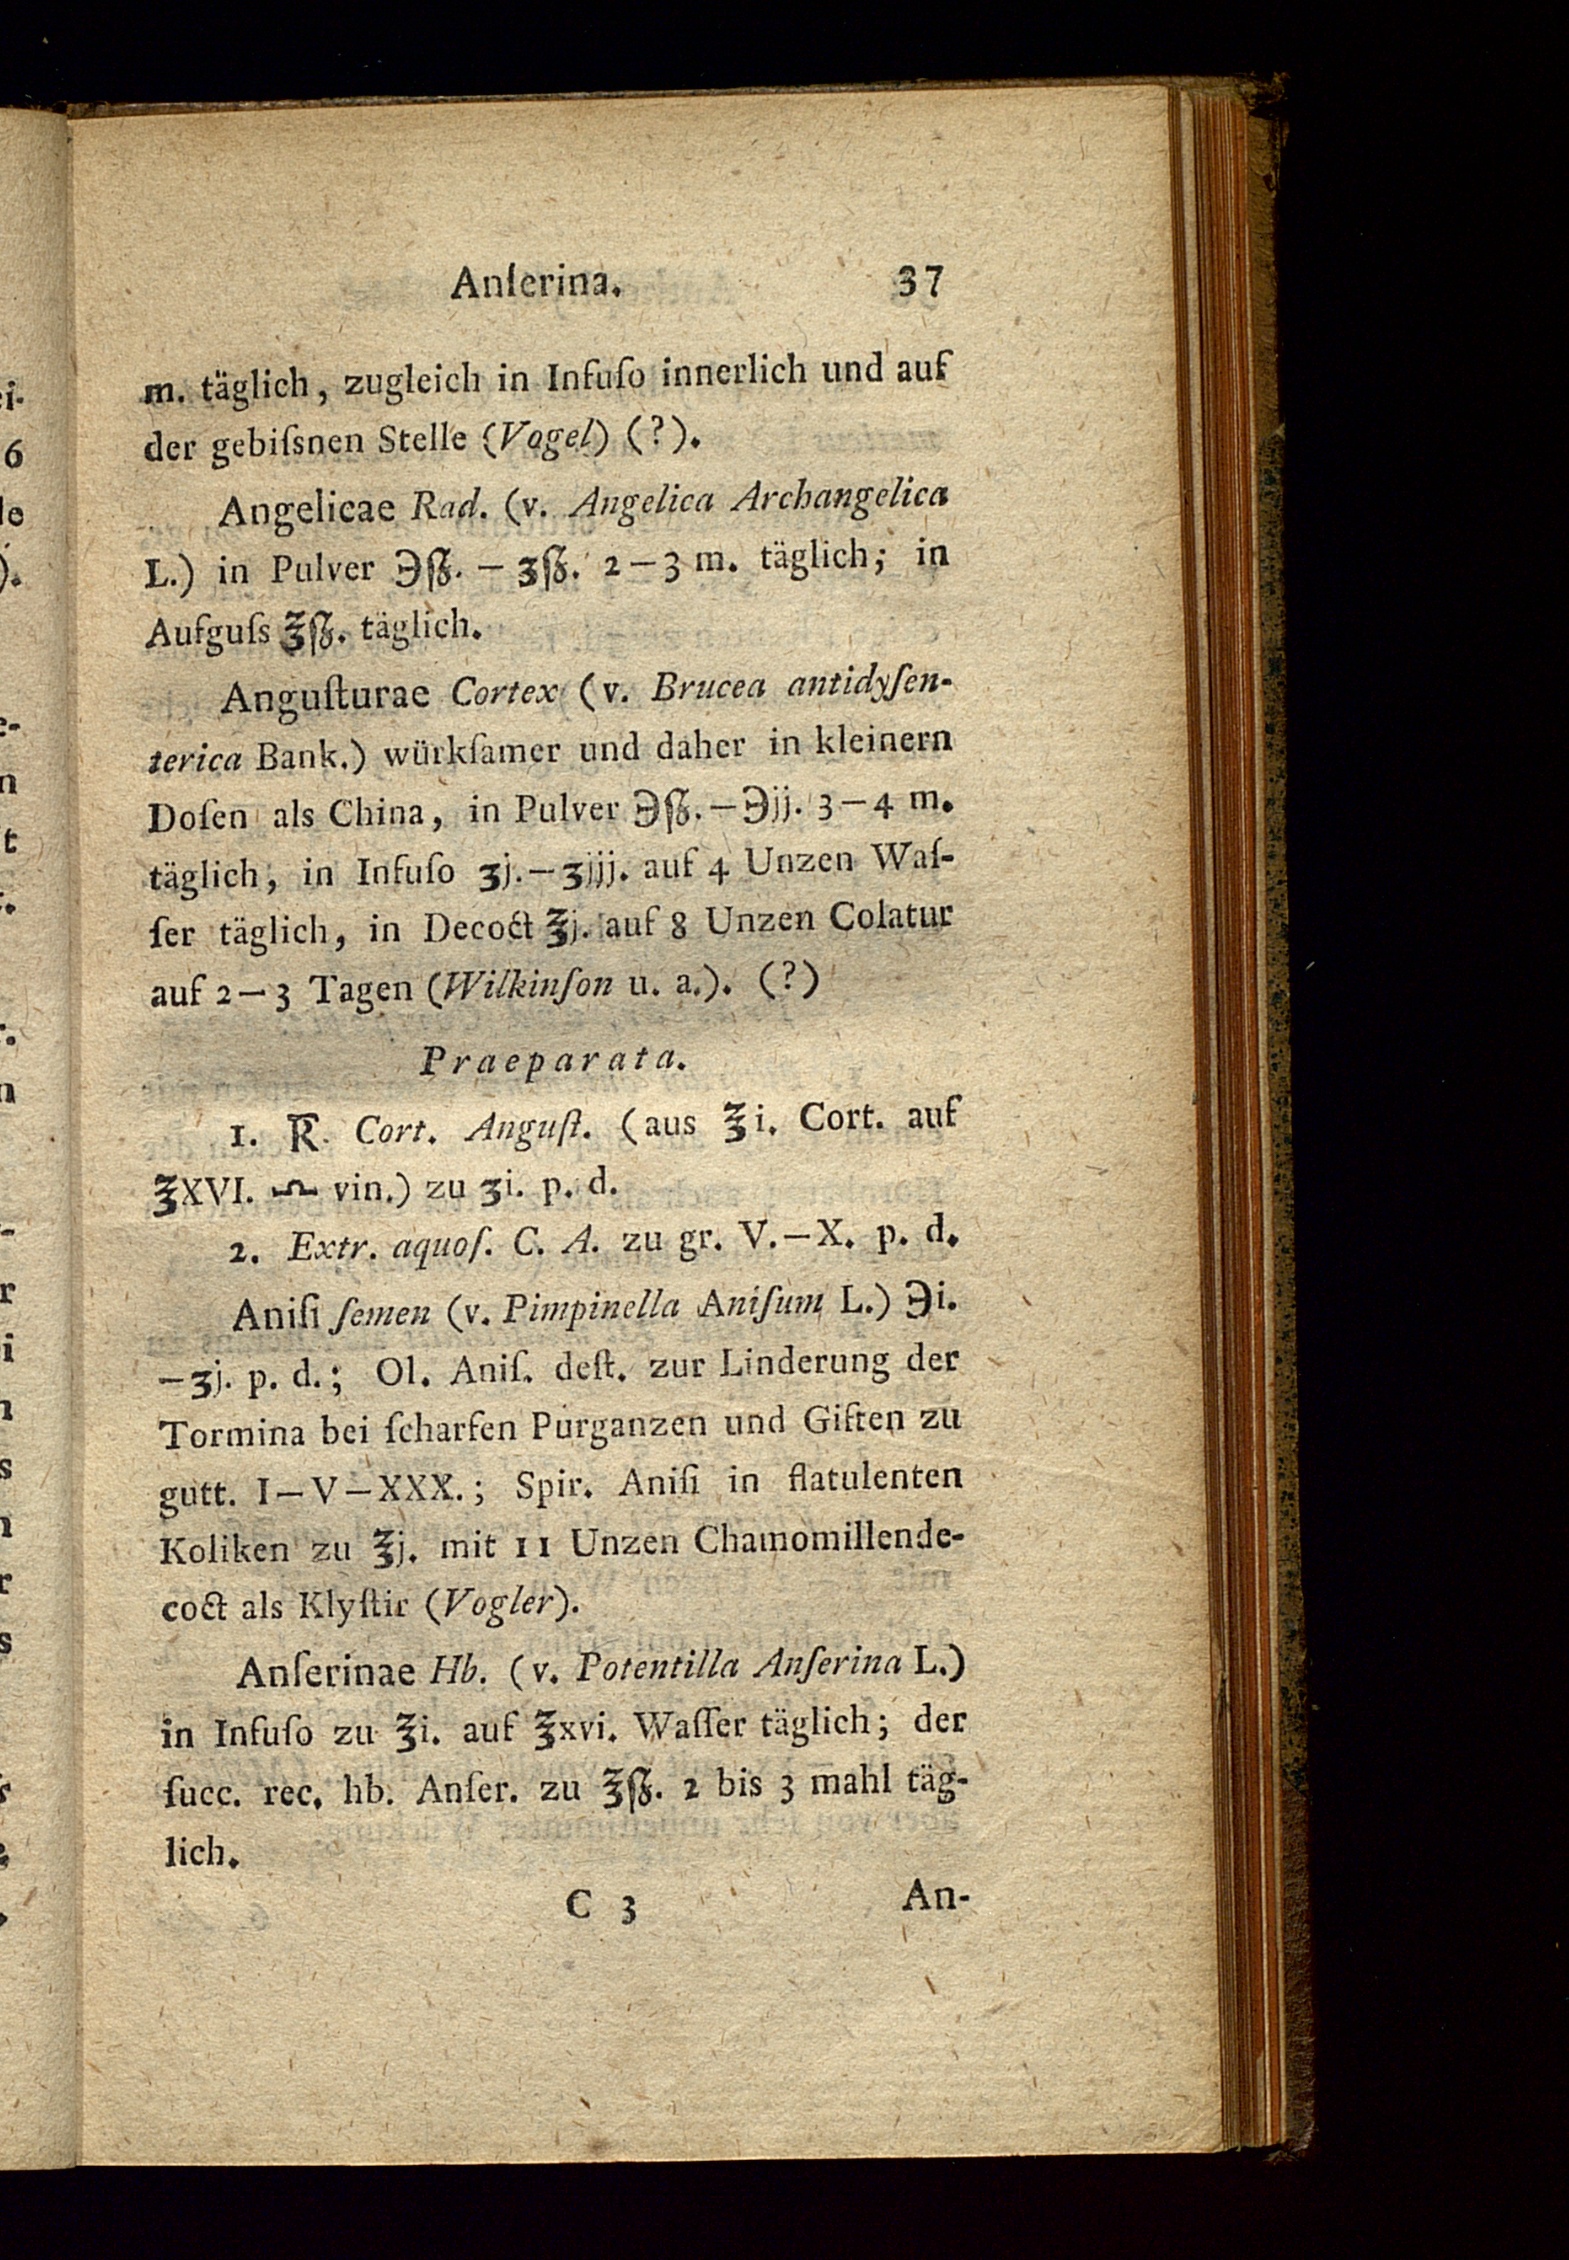 Anſerina. 37
m. täglich, zugleich in Infuſo innerlich und auf
der gebiſsnen Stelle (Vogel) (?).
Angelicae Rad. (v. Angelica Archangelica
L.) in Pulver ℈ſ℥. – ʒſ℥. 2–3 m. täglich; in
Aufguſs ℥ſ℥. täglich.
Anguſturae Cortex (v. Brucea antidyſen-
terica Bank.) würkſamer und daher in kleinern
Doſen als China, in Pulver ℈ſ℥.–℈jj. 3–4 m.
täglich, in Infuſo ʒj.–ʒjjj. auf 4 Unzen Waſ-
ſer täglich, in Decoct ℥j. auf 8 Unzen Colatur
auf 2–3 Tagen (Wilkinſon u. a.). (?)
Praeparata.
1. R̅ Cort. Anguſt. (aus ℥i. Cort. auf
℥XVI. vin.) zu ʒi. p. d.
2. Extr. aquoſ. C. A. zu gr. V.–X. p. d.
Aniſi ſemen (v. Pimpinella Aniſum L.) ℈i.
–ʒj. p. d.; Ol. Aniſ. deſt. zur Linderung der
Tormina bei ſcharfen Purganzen und Giften zu
gutt. I–V–XXX.; Spir. Aniſi in flatulenten
Koliken zu ℥j. mit 11 Unzen Chamomillende-
coct als Klyſtir (Vogler).
Anſerinae Hb. (v. Potentilla Anſerina L.)
in Infuſo zu ℥i. auf ℥xvi. Waſſer täglich; der
ſucc. rec. hb. Anſer. zu ℥ſ℥. 2 bis 3 mahl täg-
lich.
C 3 An-